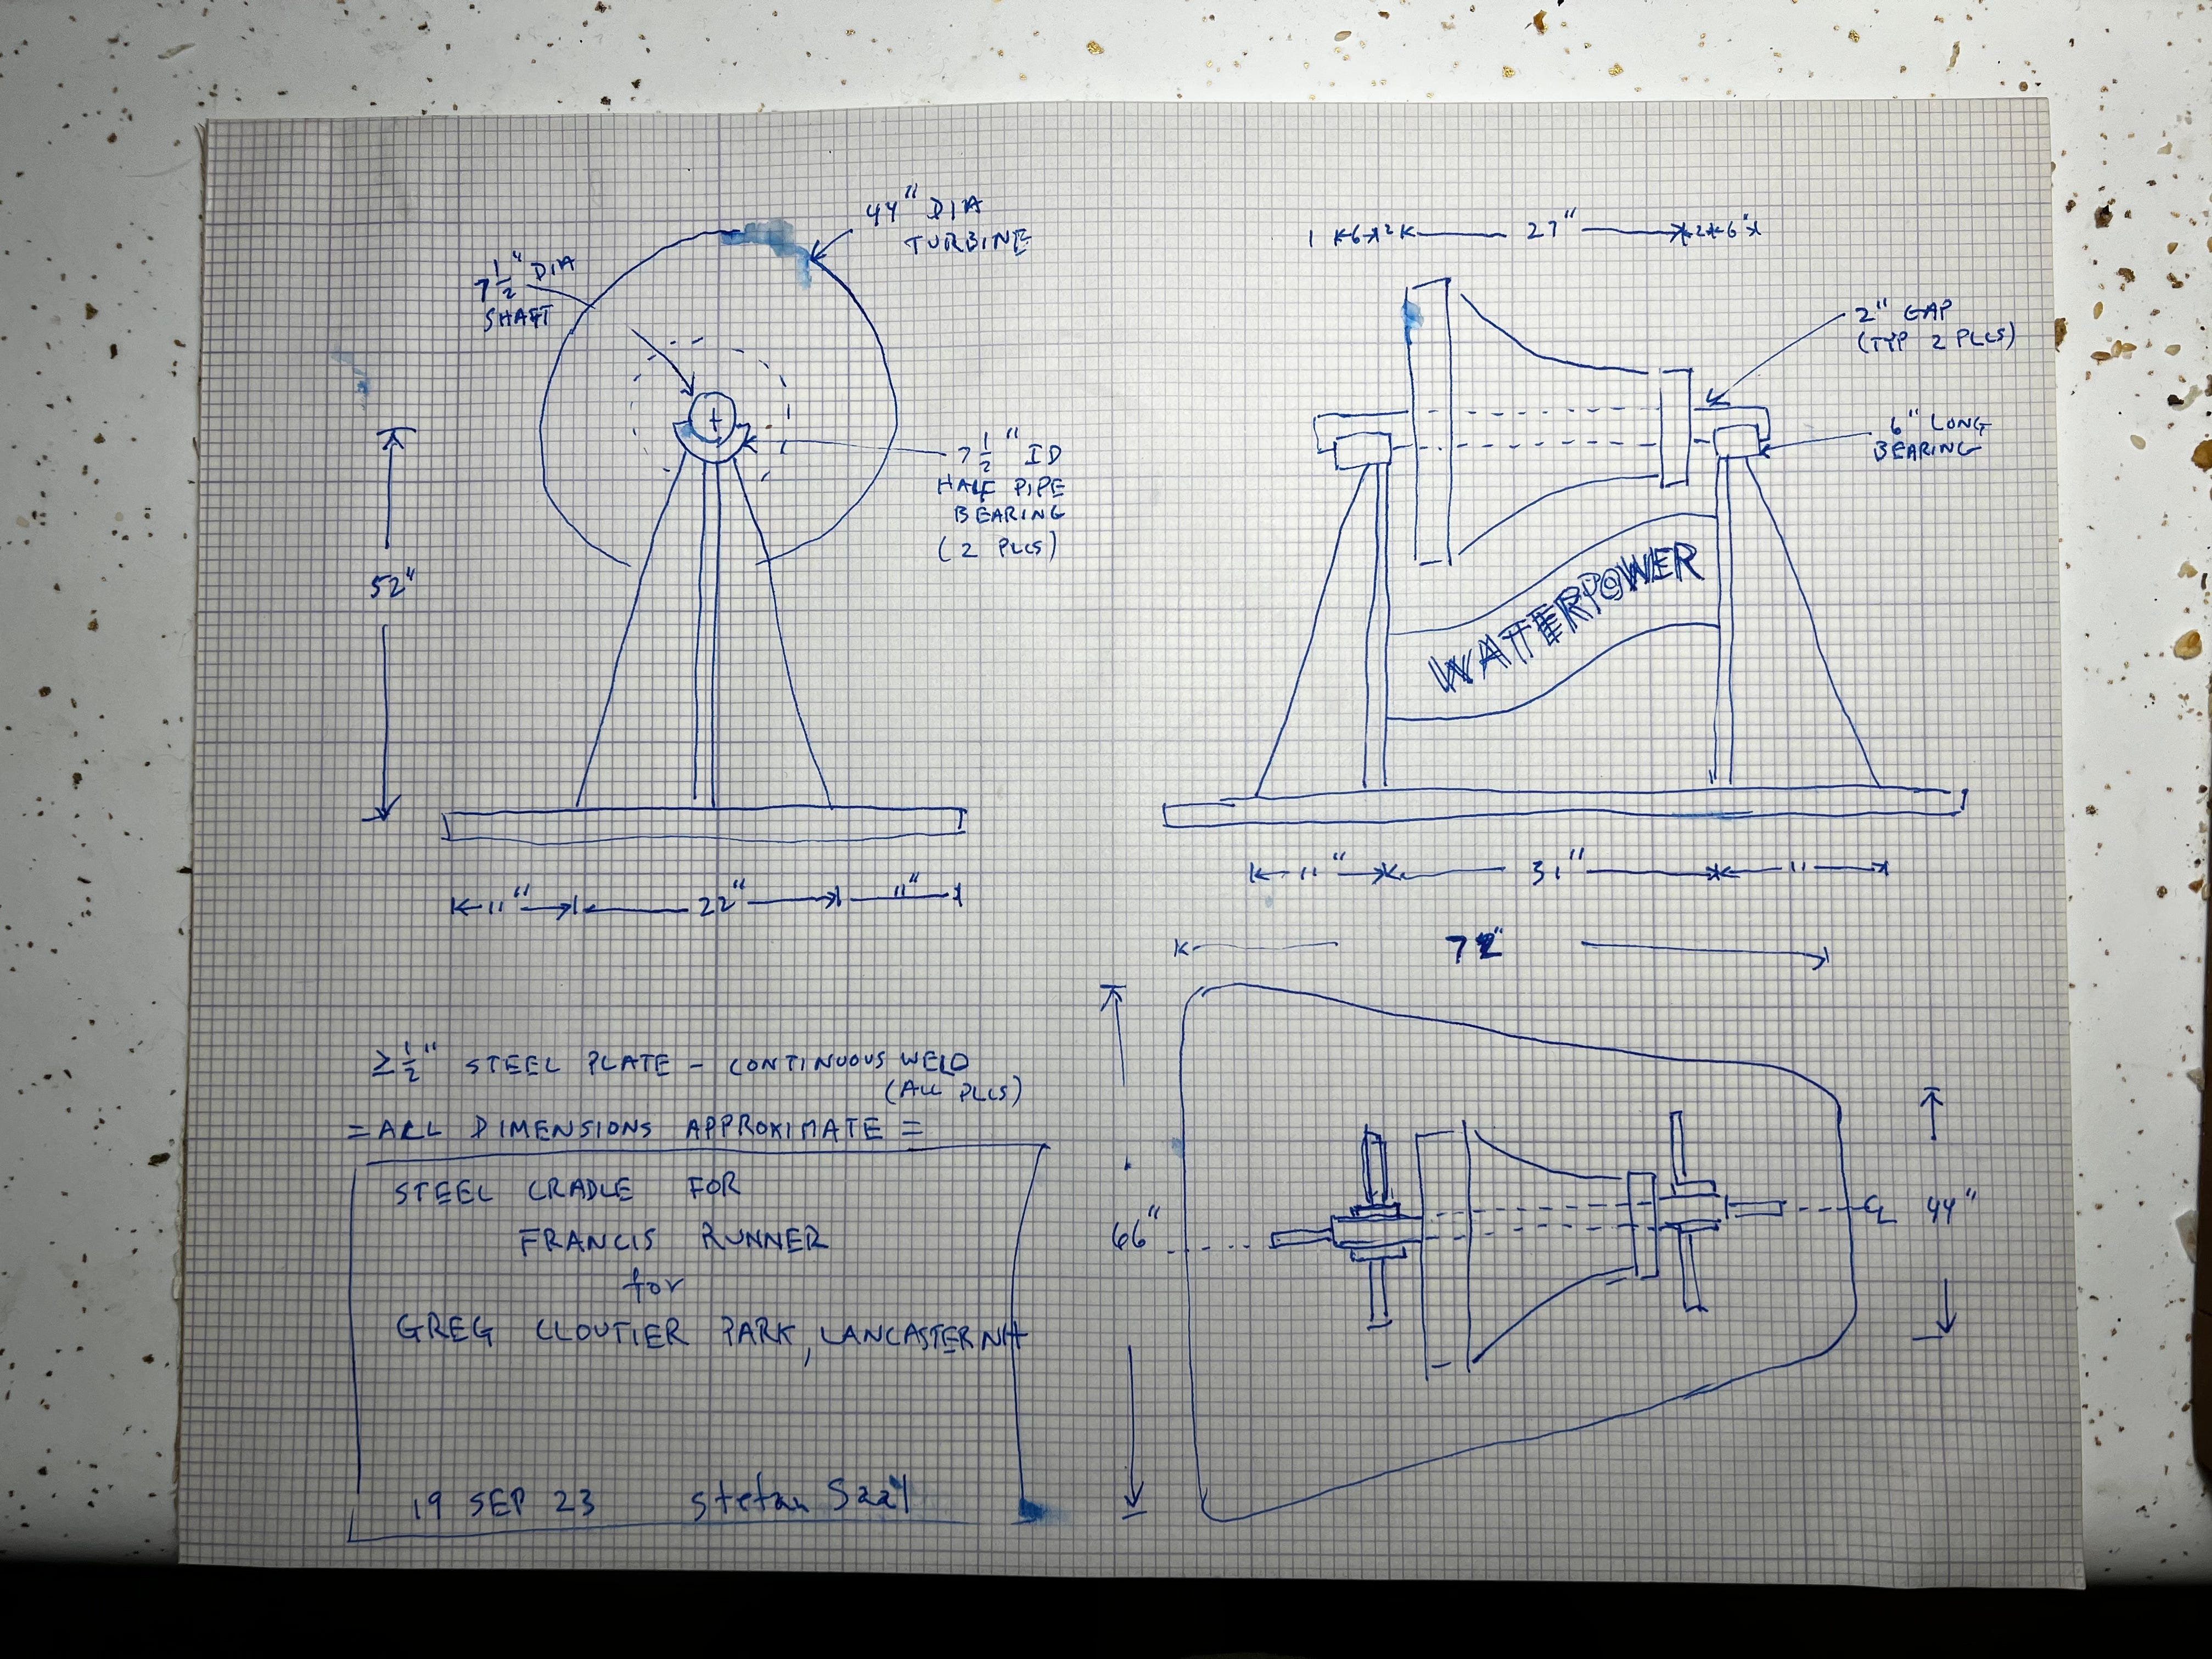 44" DIA
TURBINE
7 1/2" DIA
SHAFT
7 1/2" ID
HALF PIPE
BEARING
(2 PLCS)
52"
11" 22" 11"
6 2 27" 2 6"
2" GAP
(TYP 2 PLCS)
6" LONG
BEARING
WATTERPOWER
11" 31" 11
72"
66"
44"
CL
≥ 1/2" STEEL PLATE - CONTINUOUS WELD
(ALL PLCS)
= ALL DIMENSIONS APPROXIMATE =
STEEL CRADLE FOR
FRANCIS RUNNER
for
GREG CLOUTIER PARK, LANCASTER NH
19 SEP 23 Stefan